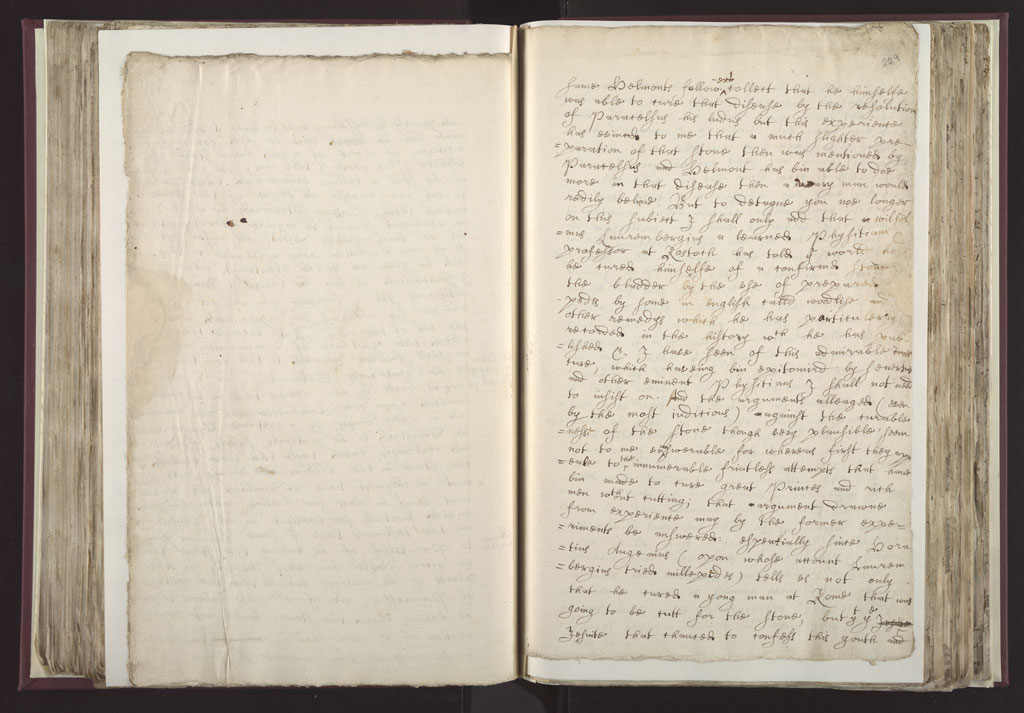 329
some Helmonts follow -ers collect that he himselfe
was able to cure that disease by the resolution
of Paracelsus his ludus but this experience
has evinced to me that a much slighter pre-
=paration of that stone then was mentioned by
Paracelsus and Helmont has bin able to doe
more in that disease then a wary man would
redily beleive. But to detayne you noe longer
on this subiect I shall only add that wilhel
=mus Laurembergius a learned Physitian &
professor at Rostock has told world
he cured himselfe of a confirmd stone
the bladder by the use of prepared
by some in english calld woodlise and
other remedys which he has particulerly
recorded in the history wch he has pub
=lished & I have seen of this admirable
ture, which haveing bin by
and other eminent Physitians I shall not need
to insist on. And the arguments alleaged (even
by the most juditious) against the curable
=nesse of the stone though very plausible seem
not to me answerable for whereas first they
to the innumerable fruitless attempts that have
bin made to cure great Princes and rich
men without cutting; that argument drawne
from experience may by the former expe-
=riments be answered: espentially since Hora
=tius Augenius (upon whose account Laurem
=bergius tried millepedes) tells us not only
that he cured a yong man at Rome that was
going to be cutt for the stone, but yt ye
Jesuite that chanced to confess this youth and